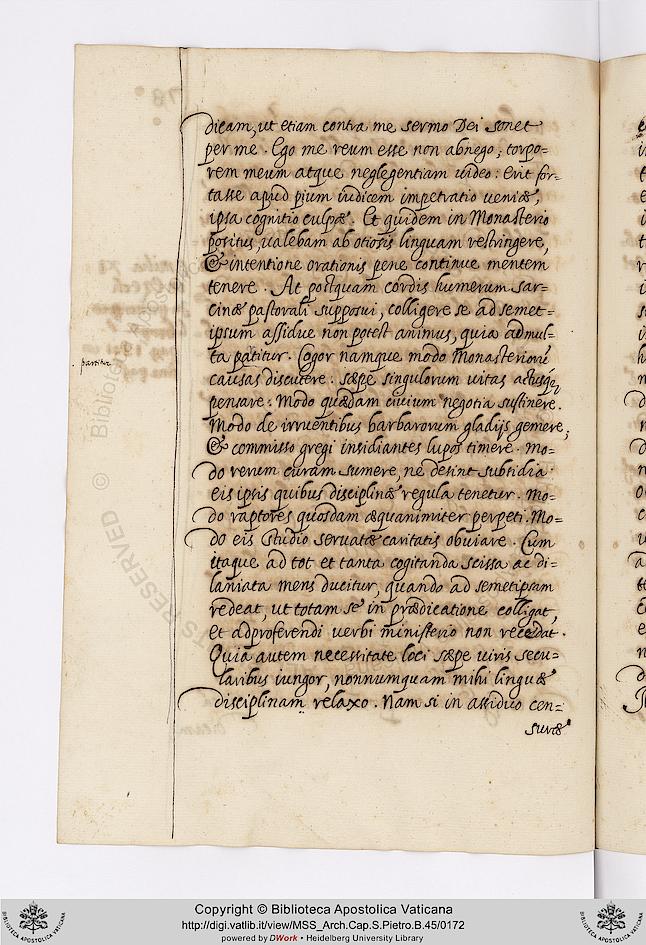 dicam, ut etiam contra me sermo Dei sonet
per me. Ego me reum esse non abnego; torpo=
rem meum atque neglegentiam video: Erit for=
tasse apud pium iudicem impetratio veniæ,
ipsa cognitio culpæ. Et quidem in Monasterio
positus, valebam ab otiosis linguam restringere,
& intentione orationis pene continue mentem
tenere. At postquam cordis humerum sar=
cinæ pastorali supposui, colligere se ad semet=
ipsum assidue non potest animus, quia ad mul=
ta patitur. Cogor namque modo Monasteriorũ
partitur
causas discutere. sæpe singulorum vitas actusq́;
pensare: Modo quædam civium negotia sustinere.
Modo de irruentibus barbarorum gladijs gemere,
& commisso gregi insidiantes lupos timere. mo=
do rerum curam sumere, ne desint subsidia
eis ipsis quibus disciplinæ regula tenetur. Mo=
do raptores quosdam æquanimiter perpeti. Mo=
do eis studio servatæ caritatis obviare. Cum
itaque ad tot et tanta cogitanda scissa ac di=
laniata mens ducitur, quando ad semetipsam
redeat, ut totam se in prædicatione colligat,
et ad proferendi verbi ministerio non recedat.
Quia autem necessitate loci sæpe viris secu=
laribus iungor, nonnumquam mihi linguæ
disciplinam relaxo. Nam si in assiduo cen=
suræ
Copyright © Biblioteca Apostolica Vaticana
http://digi.vatlib.it/view/MSS_Arch.Cap.S.Pietro.B.45/0172
powered by DWork • Heidelberg University Library